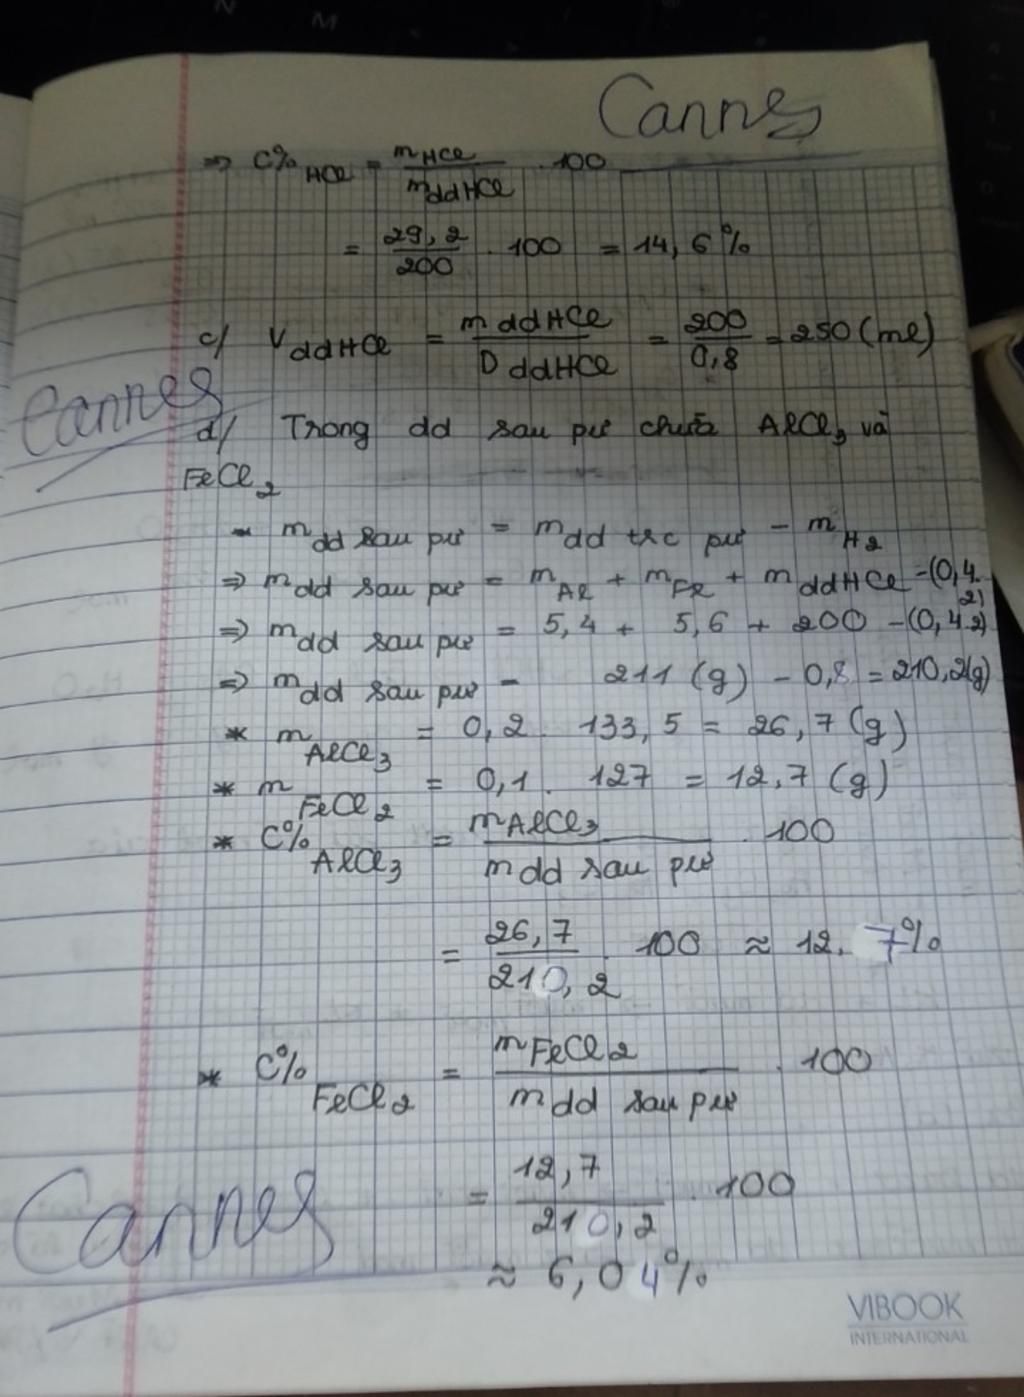 Cannes
=> C% HCl = mHCl / mddHCl . 100
= 29,2 / 200 . 100 = 14,6%
c/ VddHCl = mddHCl / DddHCl = 200 / 0,8 = 250 (ml)
Cannes
d/ Trong dd sau pư chứa AlCl3 và
FeCl2
- mdd sau pư = mdd trc pư - mH2
=> mdd sau pư = mAl + mFe + mddHCl -(0,4.
2)
=> mdd sau pư = 5,4 + 5,6 + 200 -(0,4.2)
=> mdd sau pư = 211 (g) - 0,8 = 210,2(g)
* mAlCl3 = 0,2 . 133,5 = 26,7 (g)
* mFeCl2 = 0,1 . 127 = 12,7 (g)
* C% AlCl3 = mAlCl3 / mdd sau pư . 100
= 26,7 / 210,2 . 100 ≈ 12,7%
* C% FeCl2 = mFeCl2 / mdd sau pư . 100
= 12,7 / 210,2 . 100
≈ 6,04%
Cannes
VIBOOK
INTERNATIONAL